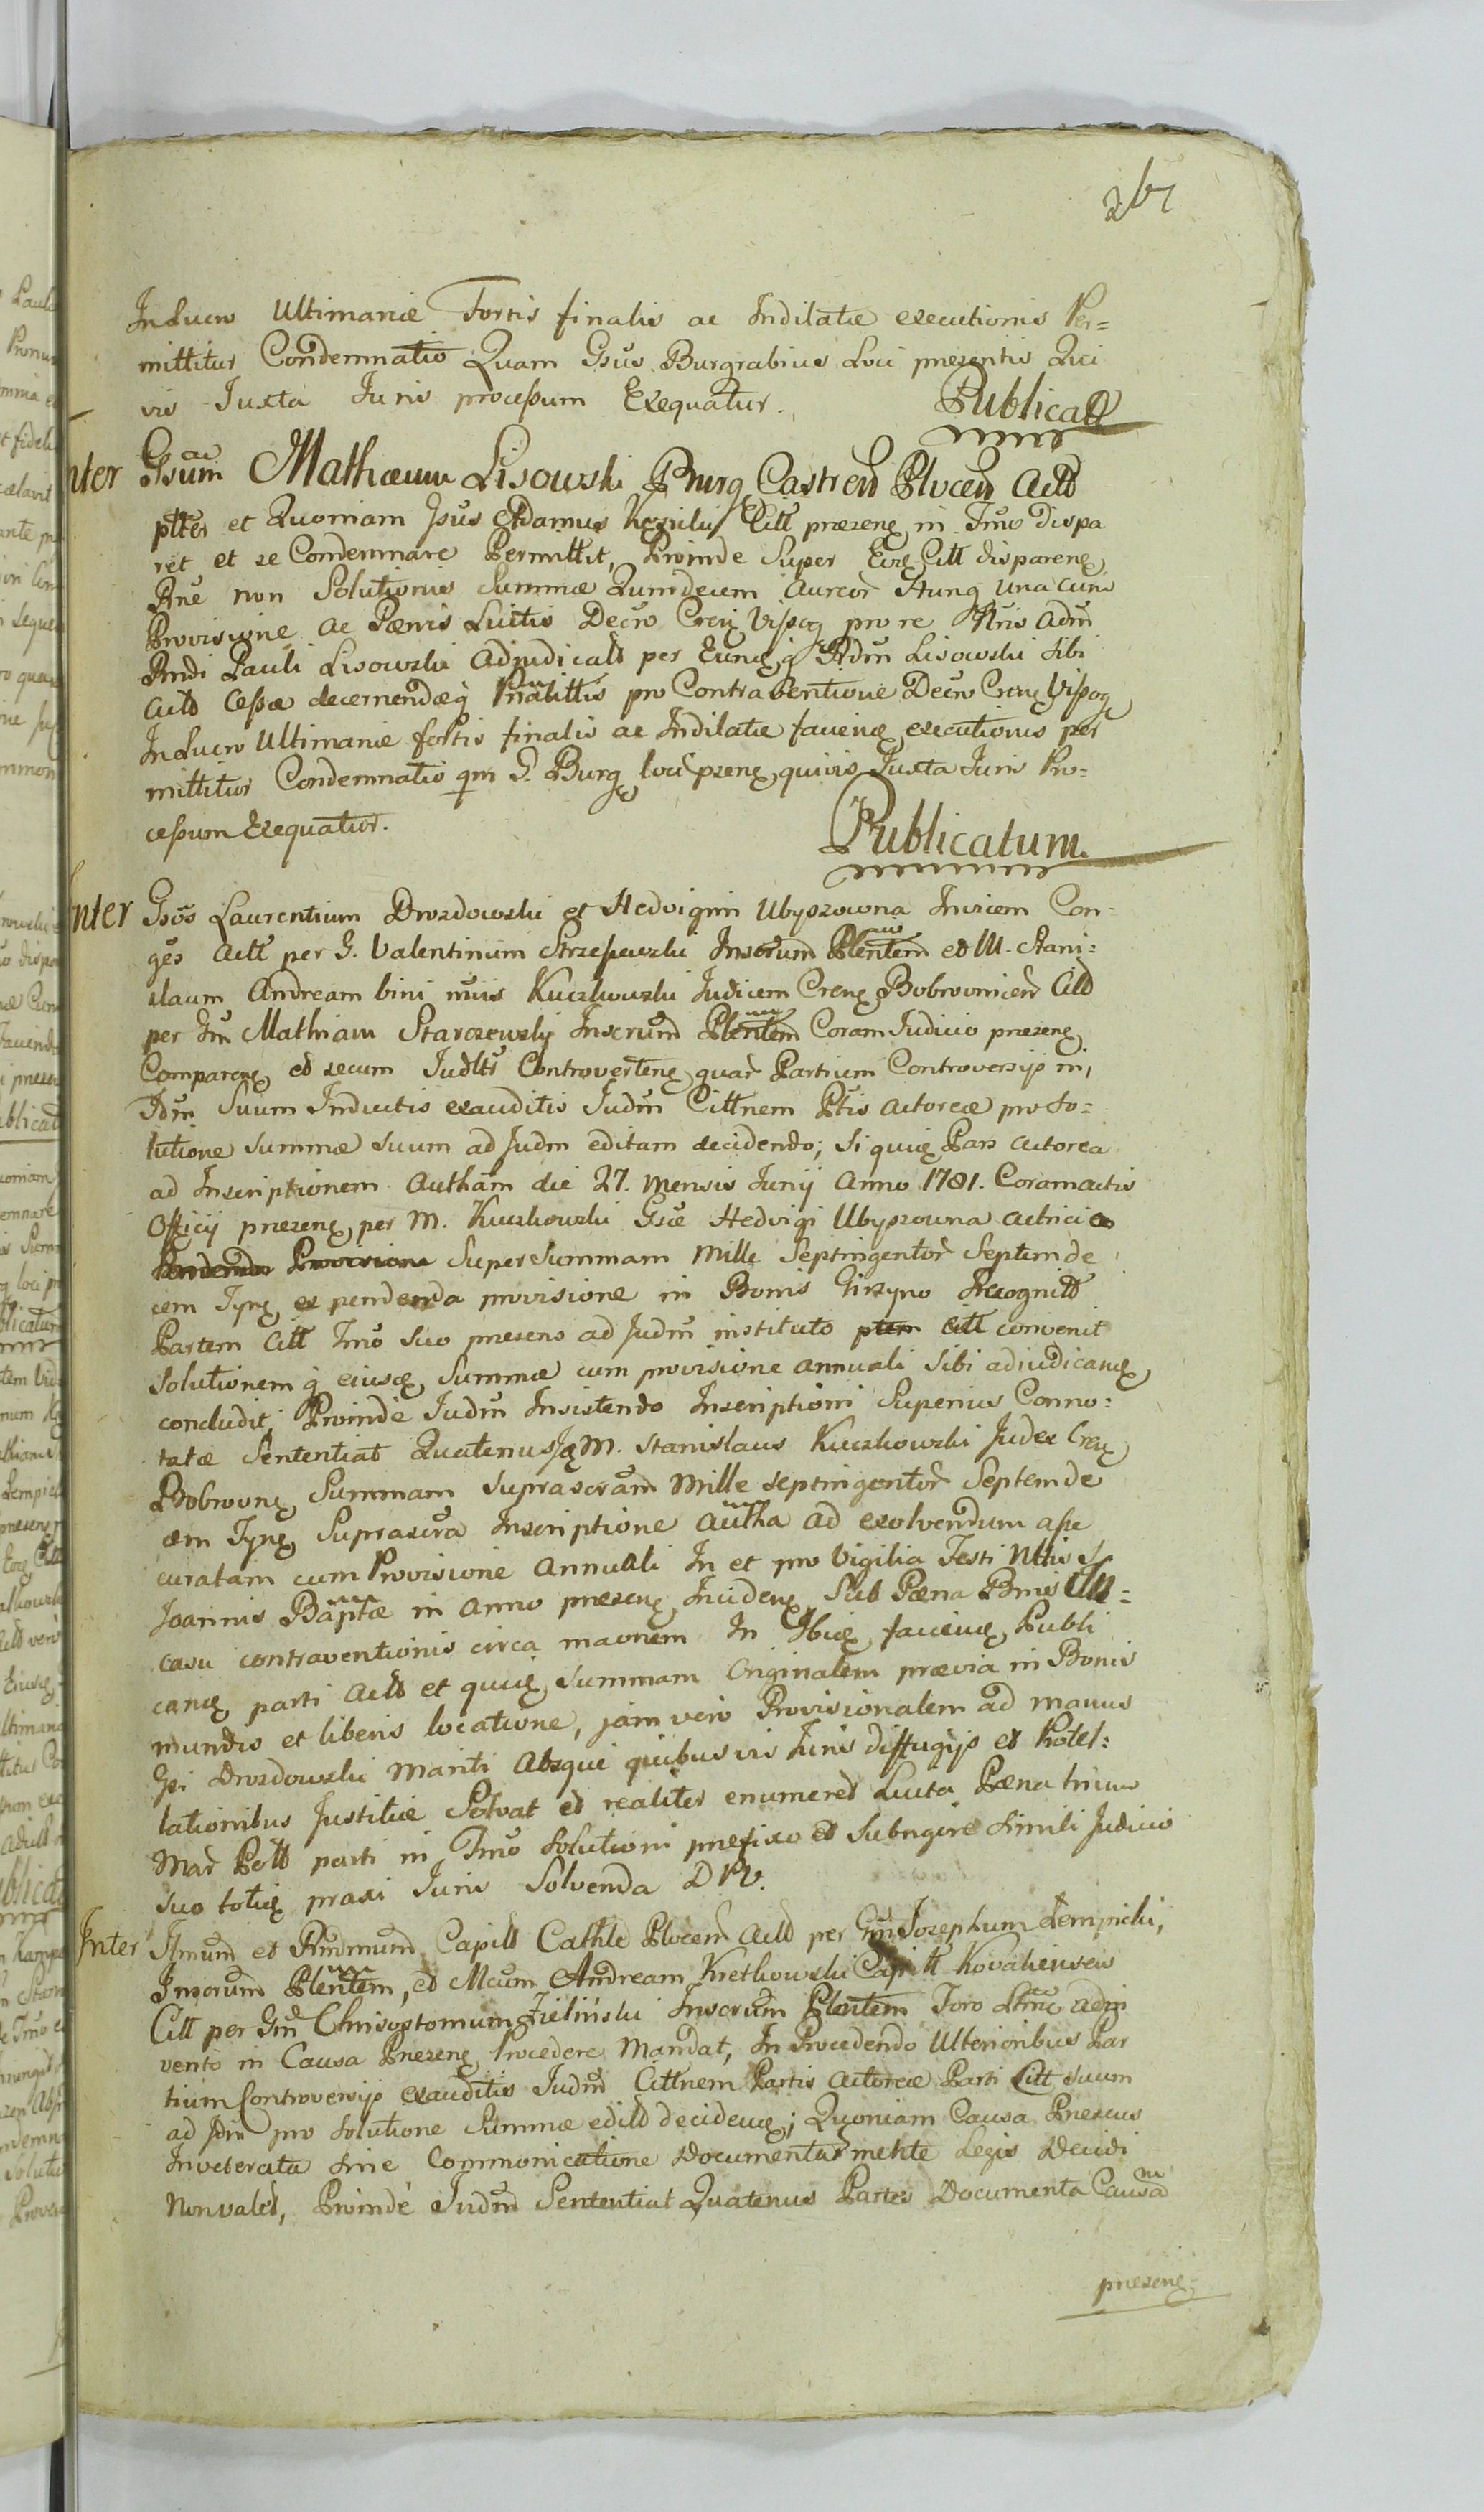 267
In Lucro Ultimariæ Fortis finalis ac Indilatæ executionis Per=
mittitur Condemnatio Quam Gsus Burgrabius Loci præsentis Qui
vis Juxta Juris processum Exequatur.
Publicatt
Inter Gsum ac Mathæum Lisowski Burg Castren Plocen Actt
ptter et Quoniam Gsus Adamus Citt præsenę in Tmo dispa
ret et se Condemnare Permittit, Proinde Super Eoz Citt disparenę
Rne non Solutionis Summæ Quindecim Aureor Hung una cum
Provisione ac Pœnis Luitis Decro Creus Vissog pro re Adm
Rndi Pauli Lisowski Adjudicatt per Eunę q Rdm Lisowski sibi
Actt Cessæ decernendæq pro Contraventione Decro Crenę Vissog
In Lucro Ultimariæ fortis finalis ac Indilatæ facienę executionis per
mittitur Condemnatio qm G. Burg loci przenę quivis Juxta Juris Pro=
cessum Exequatur.
Publicatum
Inter Gsos Laurentium Drozdowski et Hedvigim Ubyszowna Invicem Con=
ges Actt per G. Valentinum Strzeszewski Inscrum Plentem et M. Stani=
slaum Andream bini nnis Kuczkowski Judicem Crenę Bobrovnicen Citt
per Gm Mathiam Starczewski Inscrum Plentem Coram Judicio præzenę
Comparenę et secum Judltr Controvertenę quar Partium Controversijs in,
Jdm Suum Inductis exauditis Judm Cittnem Ptis actoreæ pro so=
lutione summæ suum ad Judm editam decidendo; Si quię Pars actorea
ad Inscriptionem Autham die 27. mensis Junij Anno 1781. Coram actis
Officij præzenę, per M. Kuczkowski Gsæ Hedvigi Ubyszowna actrici
Provisione Super Summam Mille Septingentor Septemde
cem Tynę ex pendenda provisione in Bonis Girzyno Recognitt
Partem Citt Tmo suo præsens ad Judm instituto ptem Citt convenit
Solutionem q eiusę summæ cum provisione annuali sibi adiudicanę
concludit; Proinde Judm Insistendo Inscriptioni Superius Conno=
tatæ Sententiat Quatenus M. Stanislaus Kuczkowski Judex Crenę
Bobrownę Summam suprascram Mille septingentor Septemde
cem Tynę Suprascra Inscriptione autha ad exolvendum asse
curatam cum Provisione Annuali In et pro Vigilia Festi Nttis S
Joannis Baptæ in anno præzenę Incidenę Sub Pœna Bnis
casu contraventionis circa mavnem In Ibię facienę Publi
canę parti Actt et quię summam Originalem prævia in Bonis
mundis et liberis locatione, jam vero Provisionalem ad manus
Gsi Drozdowski Mariti Absque quibusvis Juris diffugijs et Rotel=
lationibus Justitiæ Solvat et realiter enumeret Luita Pœna trium
Mar Pott parti in Tmo Solutioni præfixo et Subrigore Simili Judicio
suo totię praxi Juris Solvenda DPV.
Inter Ilmum et Rndmum Capitt Cathle Plocen Actt per Gm Josephum Lempicki,
Inscrum Plentem, et Mcum Andream Kretkowski Capitt Kovaliensem
Citt per Gm Chrisostomum Zieliński Inscrum Plentem Foro adin
vento in Causa Præzenę procedere Mandat, In Procedendo Ulterioribus Par
tium Controversijs exauditis Judm Cittnem Partis actoreæ Parti Citt suum
ad Jdm pro solutione Summæ editt decidenę; Quoniam Causa Præsens
Inveterata sine Commonicatione Documentar mente Legis Decidi
Nonvalet, Proindé Judm Sententiat Quatenus Partes Documenta Causam
præzenę